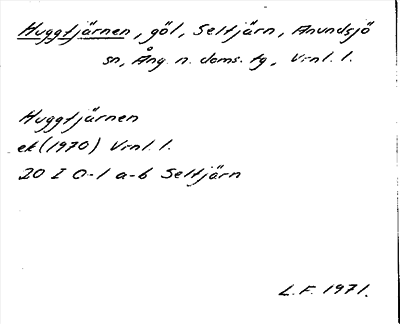 Huggtjärnen, göl, Seltjärn, Anundsjö
sn, Ång. n. doms. tg, Vrnl. l.
Huggtjärnen
ek (1970) Vrnl. l.
20 I 0-1 a-b Seltjärn
L.F. 1971.